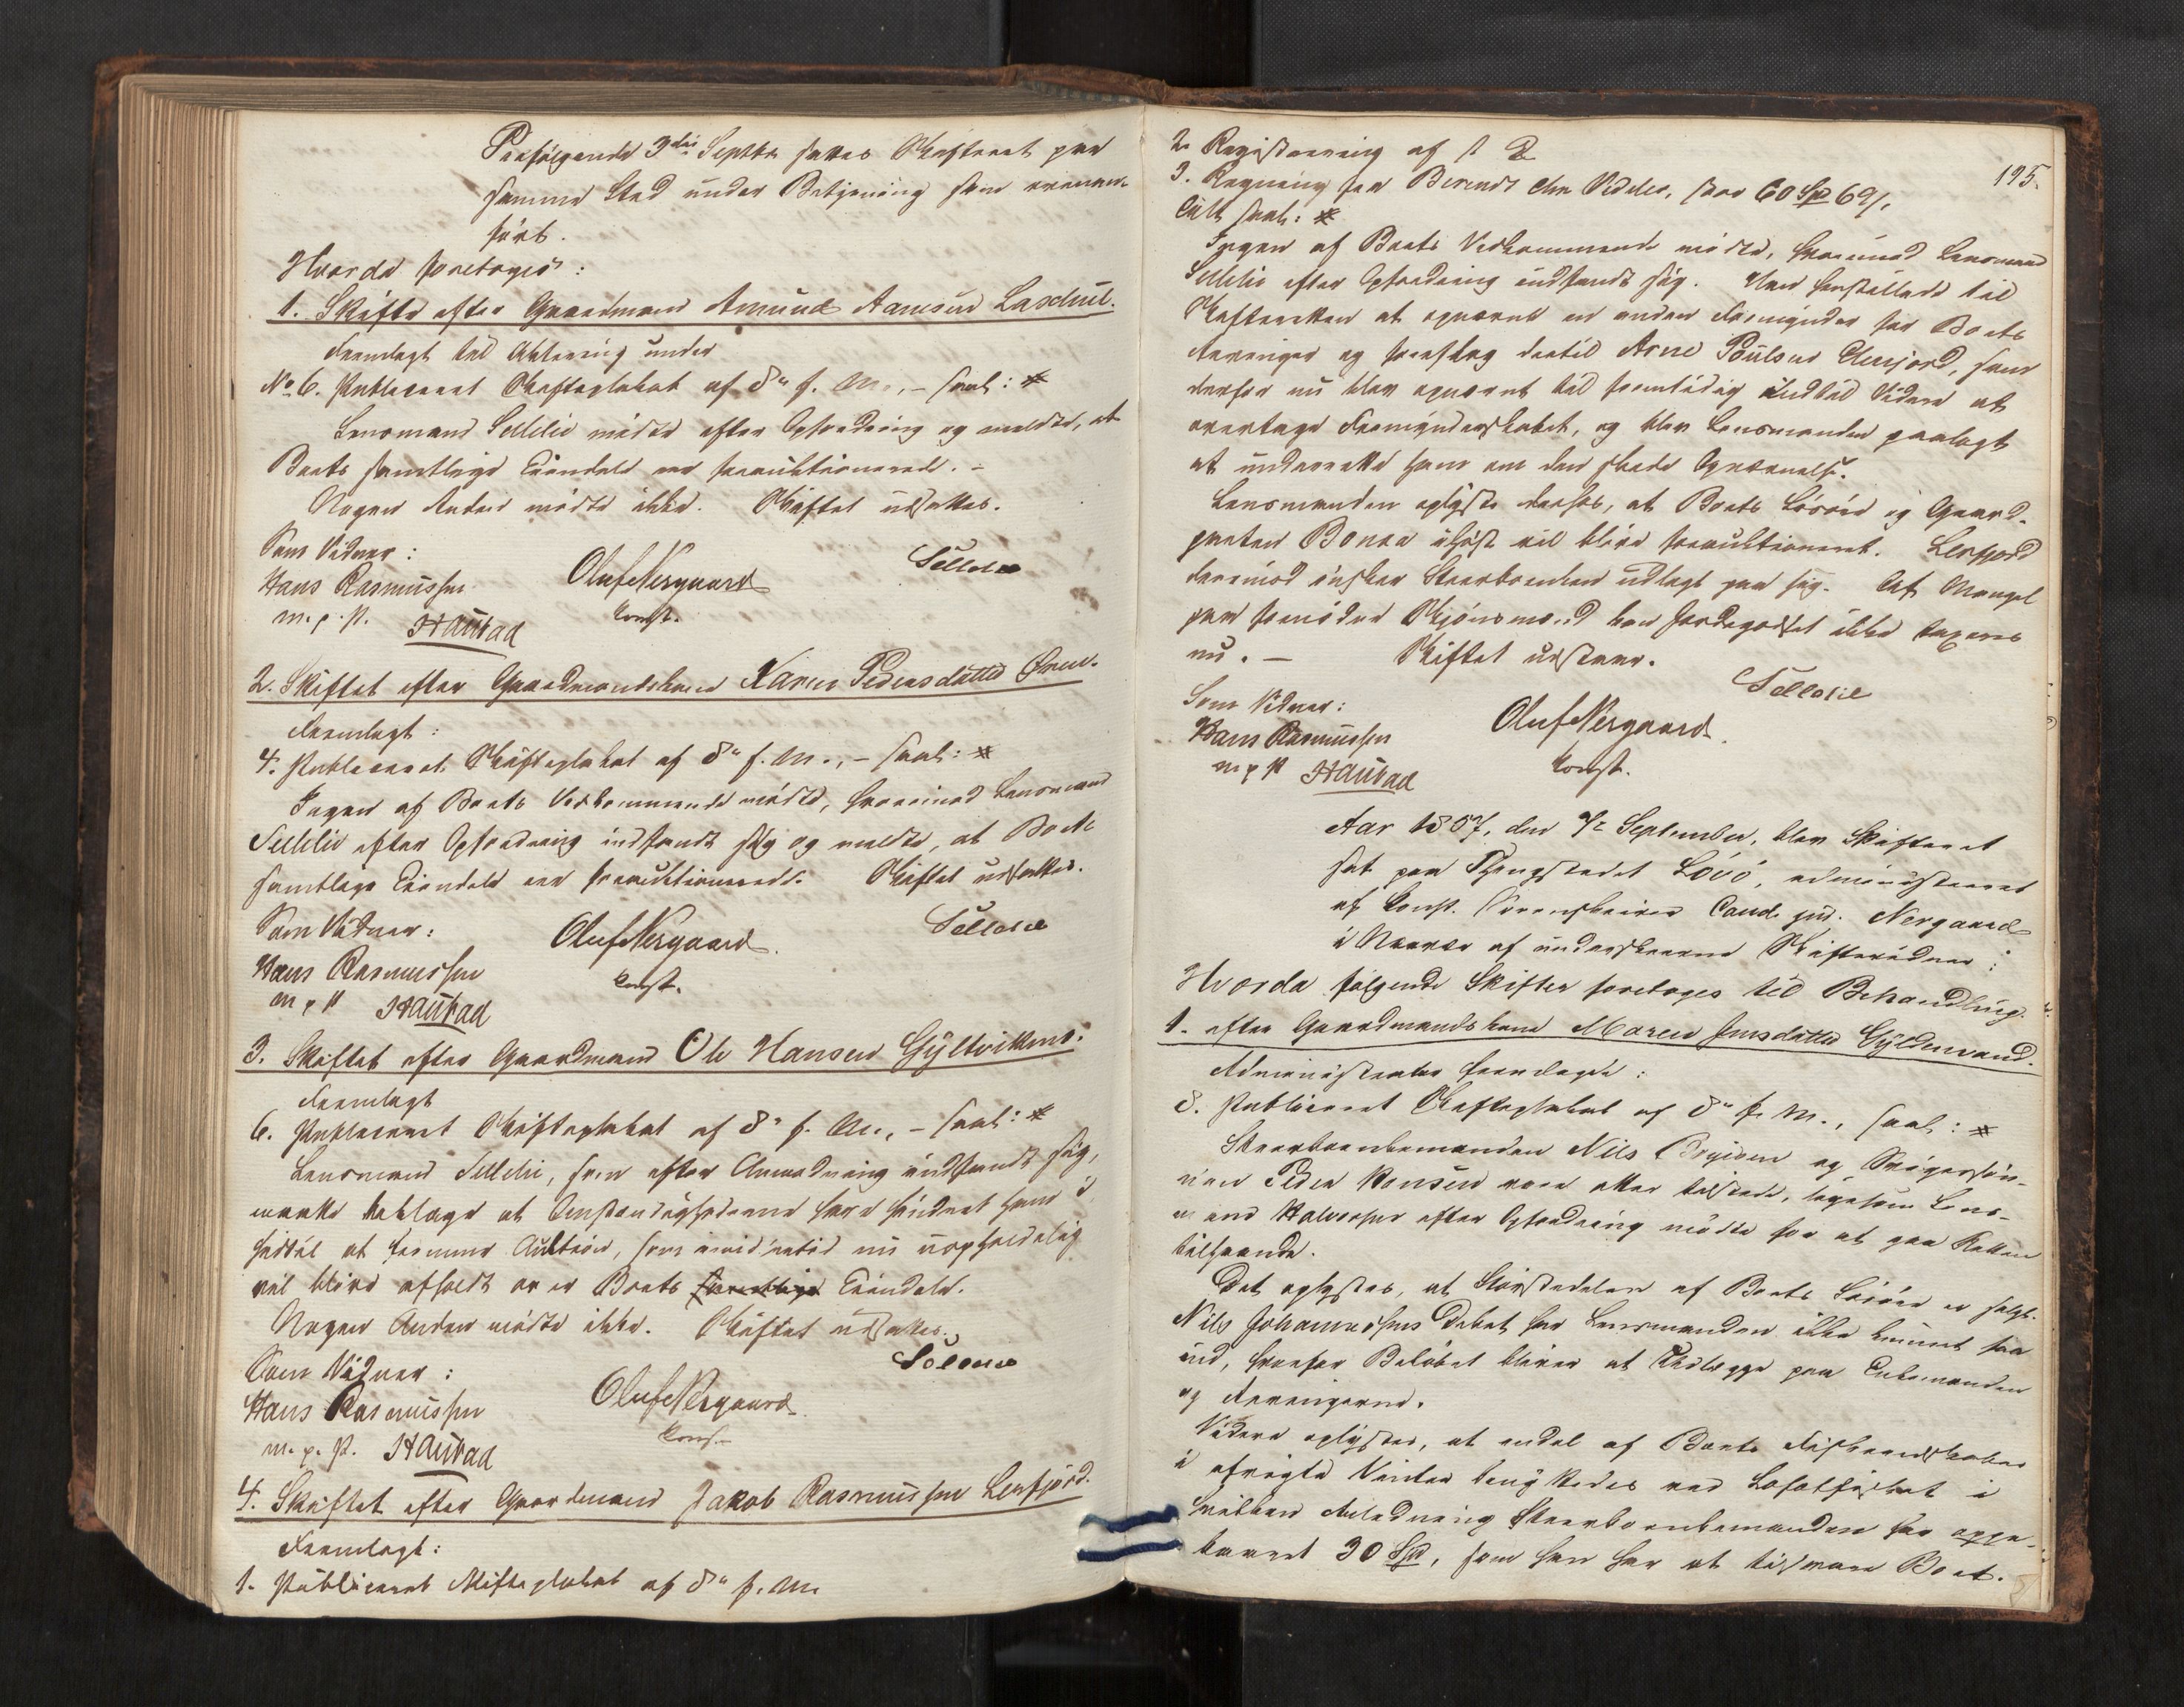 Paafølgende 3die Septbr sattes Skifteret paa
samme Sted under Betjening som ovenan-
ført.
Hvorda foretoges:
1. Skifte efter Gaardmand Amund Arnesen
Fremlagt til Aktering under
No 6. Publiceret Skifteplakat af 8de f. M., – saal: #
Lensmand Sellelie mødte efter Opfordring og meldte, at
Boets samtlige Eiendele ere forauktionerede. –
Nogen Anden mødte ikke. Skiftet udsattes.
Som Vidner:
Hans Rasmussen
m. p. P.
Haubad
Oluf Nergaard
konst.
Sellelie
2. Skiftet efter Gaardmandskone Karen Pedersdatter
Fremlagt:
4. Publiceret Skifteplakat af 8de f. M., – saal: #
Ingen af Boets Vedkommende mødte, hvorimod Lensmand
Sellelie efter Opfordring indfandt sig og meldte, at Boets
samtlige Eiendele ere forauktionerede. Skiftet udsattes.
Som Vidner:
Hans Rasmussen
m p P
Haubad
Oluf Nergaard
konst.
Sellelie
3. Skiftet efter Gaardmand Ole Hansen Gyltvikens.
Fremlagt
6. Publiceret Skifteplakat af 8de f. M., – saal: #
Lensmand Sellelie, som efter Anmodning indfandt sig,
maatte beklage at Omstændighederne have hindret ham i
hidtil at fremme Auktion, som imidlertid nu uopholdelig
vil blive afholdt over Boets samtlige Eiendele.
Nogen Anden mødte ikke. Skiftet udsattes.
Som Vidner:
Hans Rasmussen
m. p. P.
Haubad
Oluf Nergaard
konst.
Sellelie
4. Skiftet efter Gaardmand Jakob Rasmussen Leirfjord.
Fremlagt:
1. Publiceret Skifteplakat af 8de f. M.
195.
2. Registrering af
3. Regning fra Berendt Chr. stor 60 Spd 69 ß.
alt saal: #
Ingen af Boets Vedkommende mødte, hvorimod Lensmand
Sellelie efter Opfordring indfandt sig. Han henstillede til
Skifteretten at opnævne en anden Formynder for Boets
Arvinger og foreslog dertil Arne Poulsen som
derfor nu blev opnævnt til fremtidig indtil Videre at
overtage Formynderskabet, og blev Lensmanden paalagt
at underrette ham om den skede Opnævnelse.
Lensmanden oplyste derhos, at Boets Løsøre og Gaard-
parten Bonaa i Høst vil blive forauktioneret. Leirfjord
derimod ønsker Sterboenken udlagt paa sig. Af Mangel
paa fremødte Skjønsmænd kan Jordegodset ikke taxeres
nu. – Skiftet udstaar.
Som Vidner:
Hans Rasmussen
m p P
Haubad
Oluf Nergaard
konst.
Sellelie
Aar 1857, den September, blev Skifteret
sat paa Thingstedet Løvø, administreret
af konst. Sorenskriver Cand. jur. Nergaard
i Nærvær af underskrevne Skiftevidner:
Hvorda følgende Skifter foretoges til Behandling.
1. efter Gaardmandskone Maren Jensdatter Gyldenvand.
Administrator fremlagde:
8. Publiceret Skifteplakat af 8de f. M., saal: #
Sterboenkemanden Nils og Svigersøn-
nen Peder Hansen vare atter tilstede, ligesom Lens-
mand Halvorsen efter Opfordring mødte for at gaa Retten
tilhaande.
Det oplystes, at Størstedelen af Boets Løsøre er solgt.
Nils Johannesens Debet har Lensmanden ikke kunnet faa
ind, hvorfor Beløbet bliver at udlægge paa Enkemanden
og Arvingerne.
Videre oplystes, at endel af Boets Fiskeredskaber
i afvigte Vinter benyttedes ved Lofotfisket i
hvilken Anledning Sterboenkemanden har oppe-
baaret 30 Spd, som han har at tilsvare Boet.